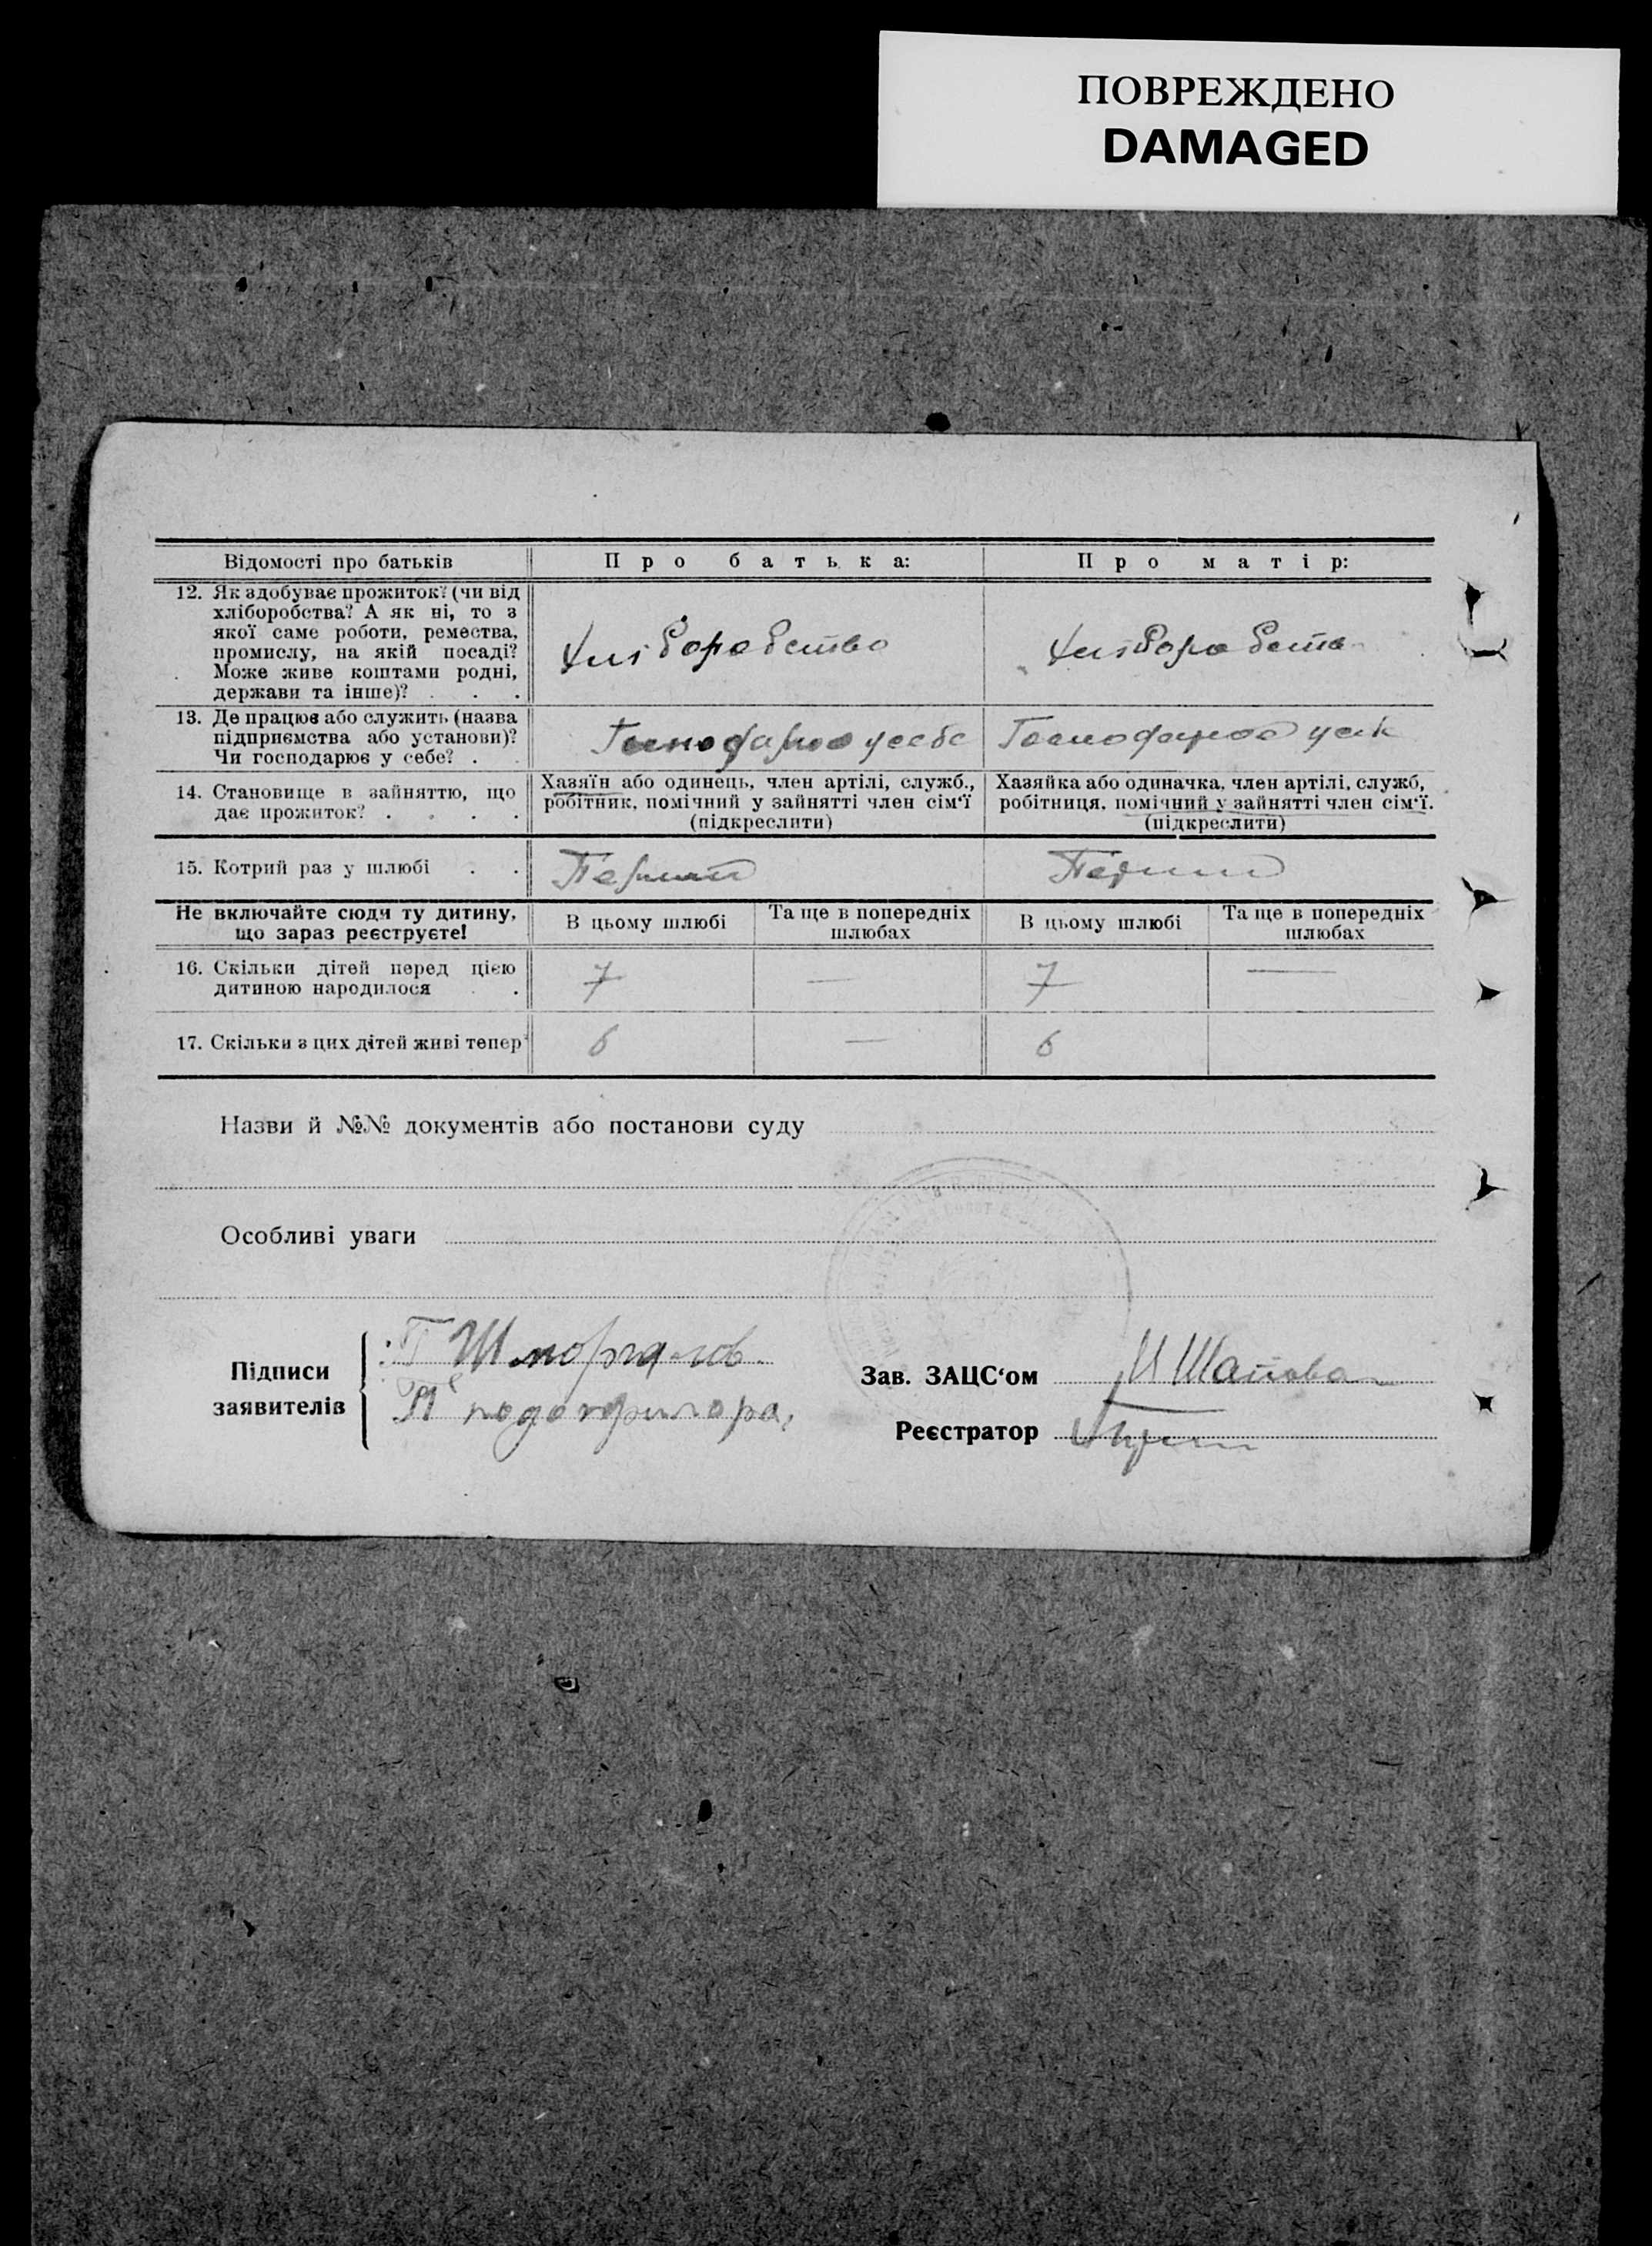 ПОВРЕЖДЕНО
DAMAGED
Відомості про батьків
Про батька:
Про матір:
12. Як здобуває прожиток? (чи від
хліборобства? А як ні, то з
якої саме роботи, ремества,
промислу, на якій посаді?
Може живе коштами родні,
держави та інше)? . . .
Хліборобство
Хліборобств
13. Де працює або служить (назва
підприємства або установи)?
Чи господарює у себе? . .
Господарює у себе
Господарює у себе
14. Становище в зайняттю, що
дає прожиток? . . . .
Хазяїн або одинець, член артілі, служб.,
робітник, помічний у зайнятті член сім'ї
(підкреслити)
Хазяйка або одиначка, член артілі, служб,
робітниця, помічний у зайнятті член сім'ї.
(підкреслити)
15. Котрий раз у шлюбі . .
Перший
Перший
Не включайте сюди ту дитину,
що зараз реєструєте!
В цьому шлюбі
Та ще в попередніх
шлюбах
В цьому шлюбі
Та ще в попередніх
шлюбах
16. Скільки дітей перед цією
дитиною народилося . .
7
—
7
—
17. Скільки з цих дітей живі тепер?
6
—
6
Назви й №№ документів або постанови суду
Особливі уваги
Підписи
заявителів
Зав. ЗАЦС'ом
Реєстратор